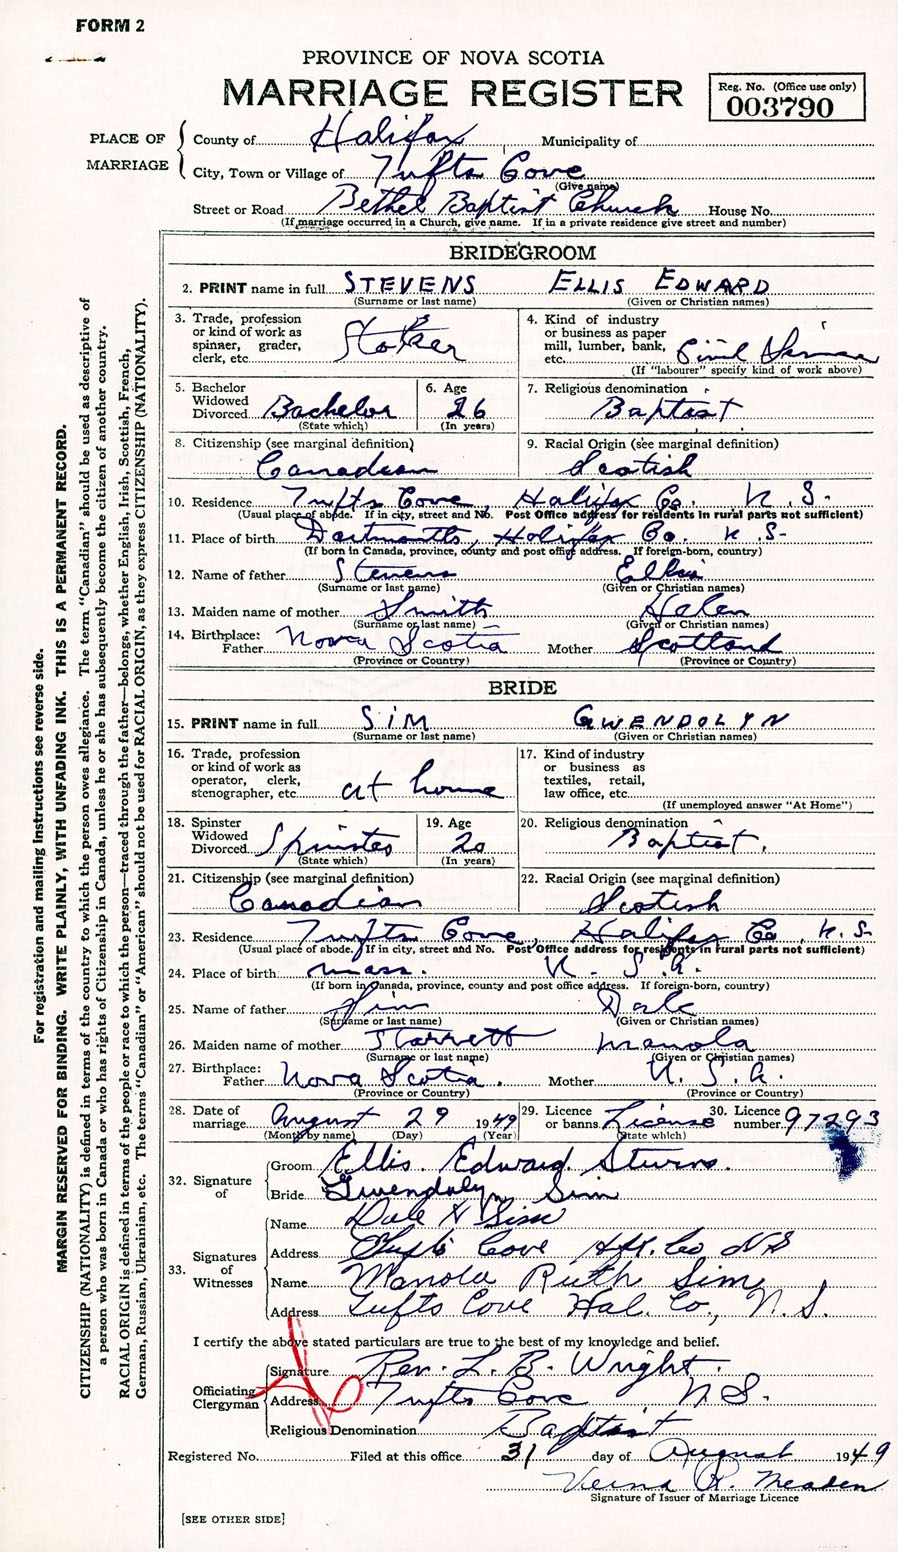 FORM 2
PROVINCE OF NOVA SCOTIA
MARRIAGE REGISTER
Reg. No. (Office use only)
003790
PLACE OF MARRIAGE
County of Halifax Municipality of
City, Town or Village of Tufts Cove
(Give name)
Street or Road Bethel Baptist Church House No.
(If marriage occurred in a Church, give name. If in a private residence give street and number)
BRIDEGROOM
2. PRINT name in full STEVENS ELLIS EDWARD
(Surname or last name) (Given or Christian names)
3. Trade, profession or kind of work as spinner, grader, clerk, etc. Stoker
4. Kind of industry or business as paper mill, lumber, bank, etc. Civil
(If "labourer" specify kind of work above)
5. Bachelor Widowed Divorced Bachelor
(State which)
6. Age 26
(In years)
7. Religious denomination Baptist
8. Citizenship (see marginal definition) Canadian
9. Racial Origin (see marginal definition) Scotish
10. Residence Tufts Cove, Halifax Co. N.S.
(Usual place of abode. If in city, street and No. Post Office address for residents in rural parts not sufficient)
11. Place of birth Dartmouth, Halifax Co. N.S-
(If born in Canada, province, county and post office address. If foreign-born, country)
12. Name of father Stevens Ellis
(Surname or last name) (Given or Christian names)
13. Maiden name of mother Smith Helen
(Surname or last name) (Given or Christian names)
14. Birthplace: Father Nova Scotia Mother Scotland
(Province or Country) (Province or Country)
BRIDE
15. PRINT name in full SIM GWENDOLYN
(Surname or last name) (Given or Christian names)
16. Trade, profession or kind of work as operator, clerk, stenographer, etc. at home
17. Kind of industry or business as textiles, retail, law office, etc.
(If unemployed answer "At Home")
18. Spinster Widowed Divorced Spinster
(State which)
19. Age 20
(In years)
20. Religious denomination Baptist.
21. Citizenship (see marginal definition) Canadian
22. Racial Origin (see marginal definition) Scotish
23. Residence Tufts Cove, Halifax Co, N.S-
(Usual place of abode. If in city, street and No. Post Office address for residents in rural parts not sufficient)
24. Place of birth Mass. U.S.A.
(If born in Canada, province, county and post office address. If foreign-born, country)
25. Name of father Sim Dale
(Surname or last name) (Given or Christian names)
26. Maiden name of mother Starrett Manola
(Surname or last name) (Given or Christian names)
27. Birthplace: Father Nova Scotia. Mother U.S.A.
(Province or Country) (Province or Country)
28. Date of marriage August 29 1949
(Month by name) (Day) (Year)
29. Licence or banns License
(State which)
30. Licence number 97293
32. Signature of
Groom Ellis Edward Stevens.
Bride Gwendolyn Sim
33. Signatures of Witnesses
Name Dale H Sim
Address Tufts Cove Hfx. Co NS
Name Manola Ruth Sim
Address Tufts Cove Hal. Co., N.S.
I certify the above stated particulars are true to the best of my knowledge and belief.
Officiating Clergyman
Signature Rev. L. B. Wright.
Address Tufts Cove N.S.
Religious Denomination Baptist
Registered No. Filed at this office 31 day of August 1949
Verna R. Meaden
Signature of Issuer of Marriage Licence
[SEE OTHER SIDE]
For registration and mailing instructions see reverse side.
MARGIN RESERVED FOR BINDING. WRITE PLAINLY, WITH UNFADING INK. THIS IS A PERMANENT RECORD.
CITIZENSHIP (NATIONALITY) is defined in terms of the country to which the person owes allegiance. The term "Canadian" should be used as descriptive of
a person who was born in Canada or who has rights of Citizenship in Canada, unless he or she has subsequently become the citizen of another country.
RACIAL ORIGIN is defined in terms of the people or race to which the person—traced through the father—belongs, whether English, Irish, Scottish, French,
German, Russian, Ukrainian, etc. The terms "Canadian" or "American" should not be used for RACIAL ORIGIN, as they express CITIZENSHIP (NATIONALITY).